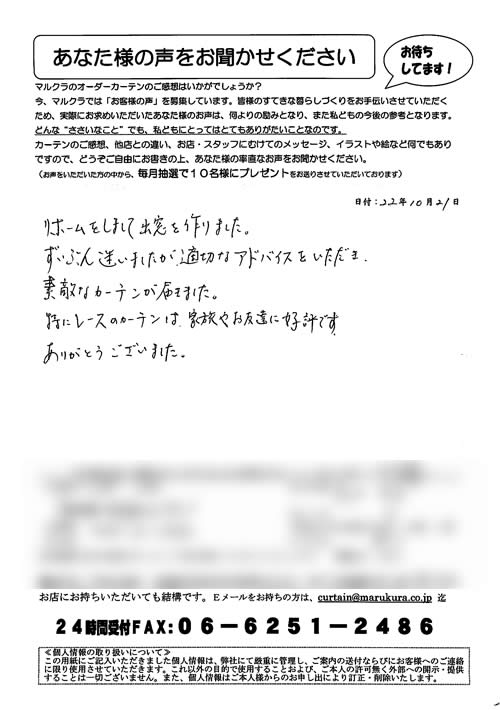 あなた様の声をお聞かせください
お待ち
してます!
マルクラのオーダーカーテンのご感想はいかがでしょうか?
今、マルクラでは「お客様の声」を募集しています。皆様のすてきな暮らしづくりをお手伝いさせていただく
ため、実際にお求めいただいたあなた様のお声は、何よりの励みとなり、また私どもの今後の参考となります。
どんな“ささいなこと”でも、私どもにとってはとてもありがたいことなのです。
カーテンのご感想、他店との違い、お店・スタッフにむけてのメッセージ、イラストや絵など何でもあり
ですので、どうぞご自由にお書きの上、あなた様の率直なお声をお聞かせください。
(お声をいただいた方の中から、毎月抽選で10名様にプレゼントをお送りさせていただいております)
日付:22年10月21日
リホームをしまして出窓を作りました。
ずいぶん迷いましたが適切なアドバイスをいただき、
素敵なカーテンが届きました。
特にレースのカーテンは、家族やお友達に好評です
ありがとうございました。
お店にお持ちいただいても結構です。Eメールをお持ちの方は、curtain@marukura.co.jp 迄
24時間受付FAX:06-6251-2486
≪個人情報の取り扱いについて≫
この用紙にご記入いただきました個人情報は、弊社にて厳重に管理し、ご案内の送付ならびにお客様へのご連絡
に限り使用させていただきます。これ以外の目的で使用することおよび、ご本人の許可無く外部への開示・提供
することは一切ございません。また、個人情報はご本人様からのお申し出により訂正・削除いたします。